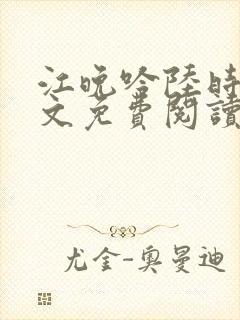 江晚吟陸時
文免費閱讀
尤金-奧曼迪